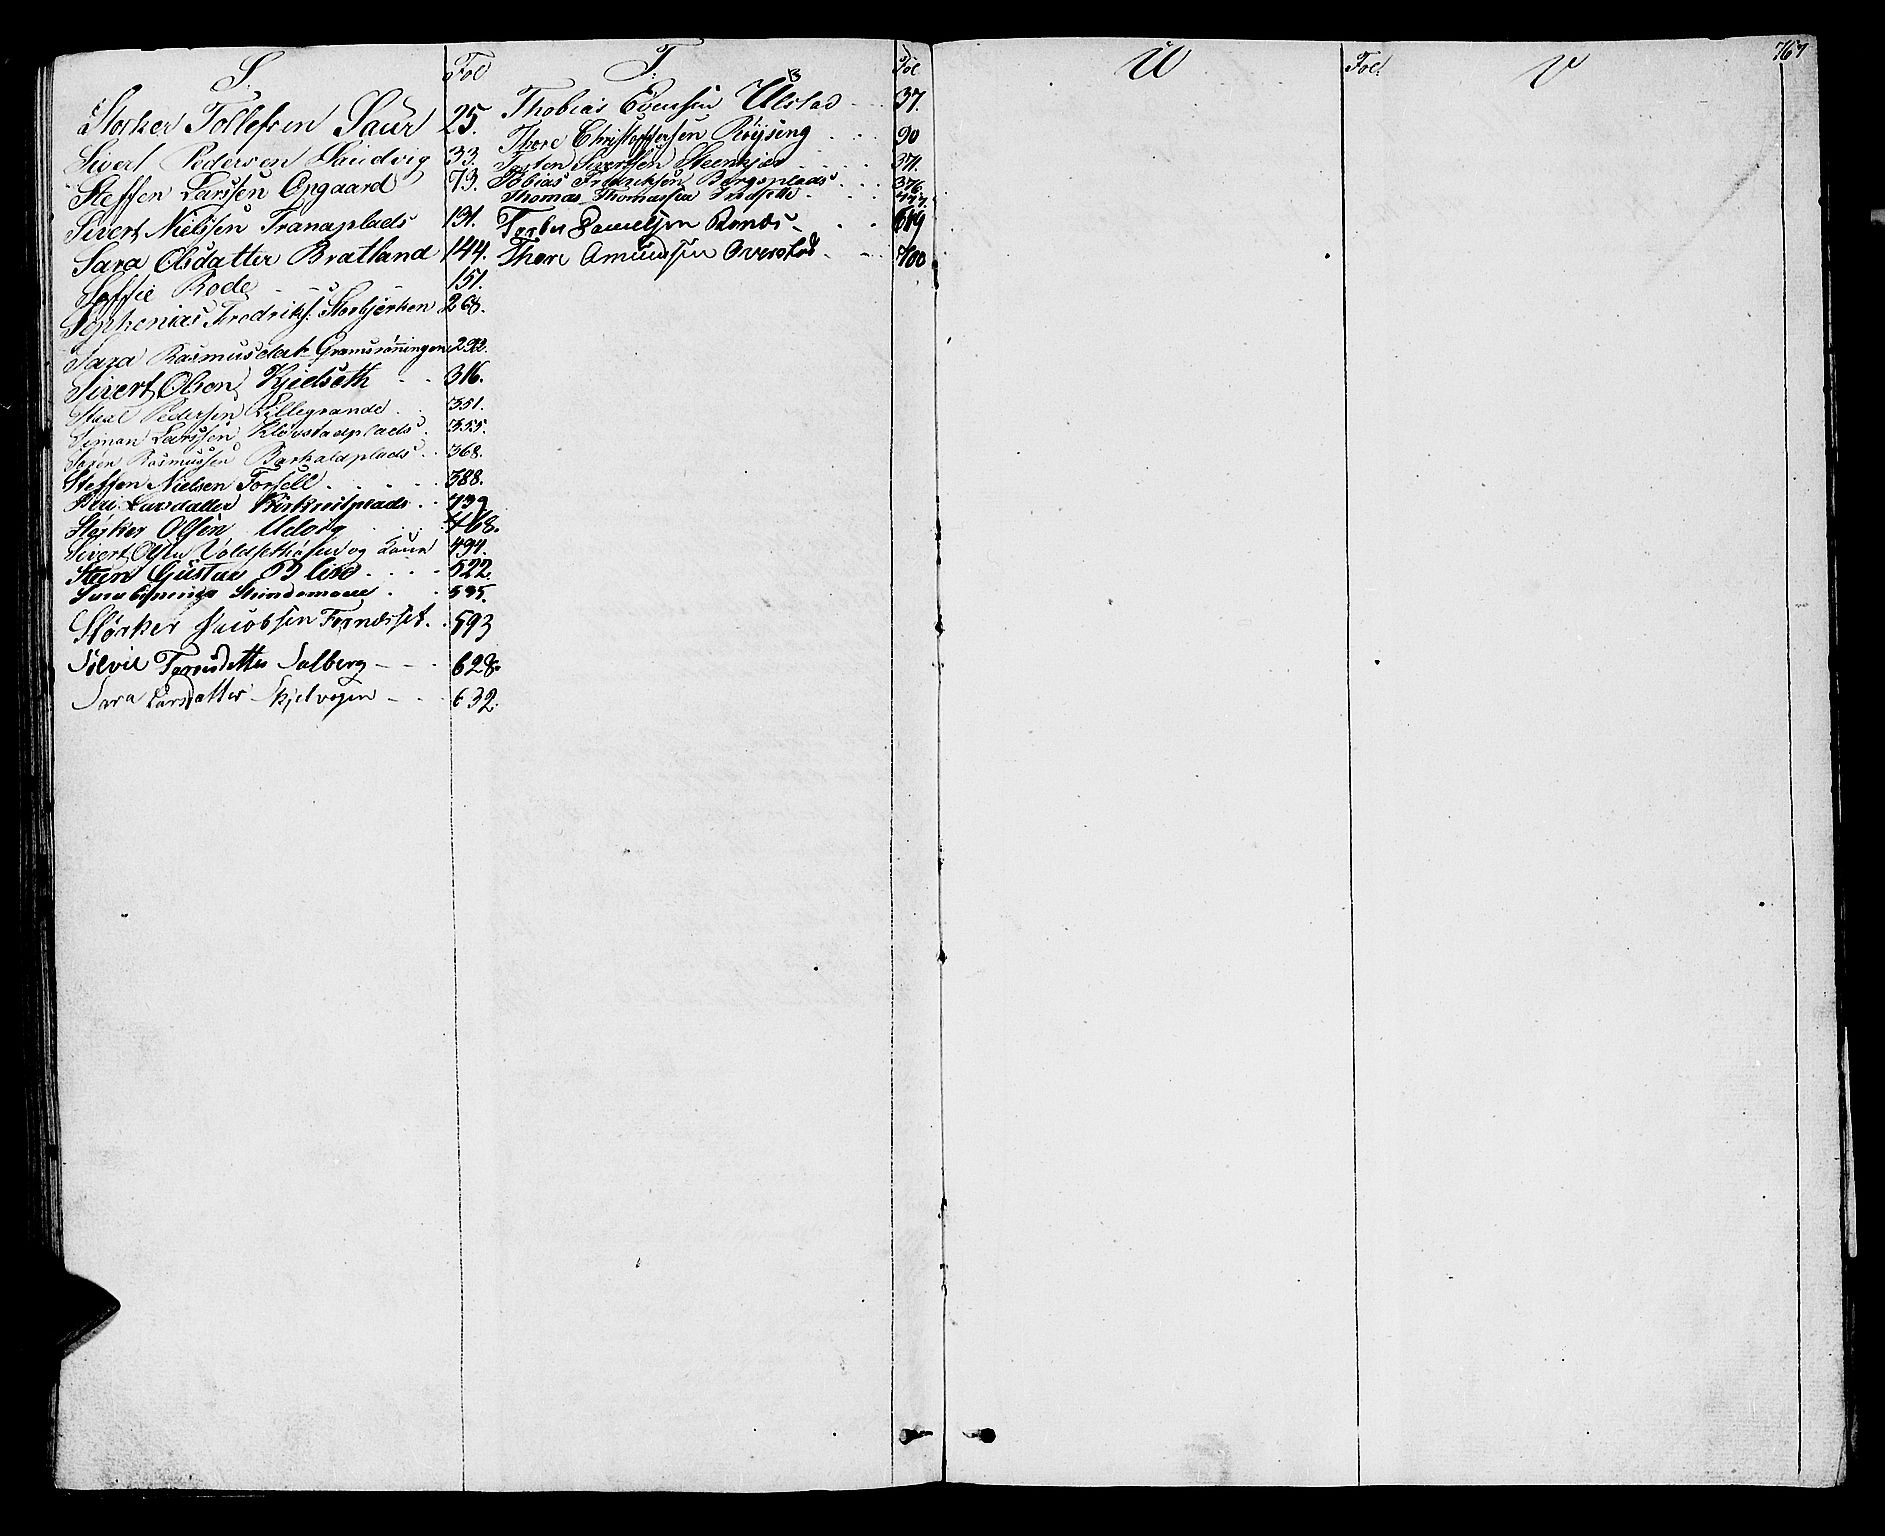 S. Fol
Størker Tollefsen Saur 25.
Sivert Pedersen Sundvig 33.
Steffen Larssen Opgaard 73.
Sivert Nielssen Tranaplads 131.
Sara Olsdatter Bratland 144.
Soffie Rode 151.
Sephonias Fredriks. Storbjerken 268.
Sara Rasmusdatr Gramsrønningen 292.
Sivert Olsen Kjelseth 316.
Pedersen Lillegrande 351.
Simon Larssen Kløvstadplads 355.
Søren Rasmussen Barhaldplads 368.
Steffen Nielsen Forsell 388.
Siri Larsdatter Kirkreitplads 439
Størker Olsen 468.
Sivert Olsen og Kone 494.
Steen Gustav Blix 522.
Sara 535.
Størker Jacobsen Fornesset 593
Sølvie Salberg 628.
Sara Larsdatter Skjelvogen 632.
T. Fol
Thobias Evensen Ulstad 37.
Thore Christophersen Røising 90
Torsten Sivertsen Steenkjær 371.
Tobias Fredriksen Bergsplads 376.
Thomas Thomassen 447.
Samuelsen 649
Thore Amundsen Overstad 700
U Fol.
V 767